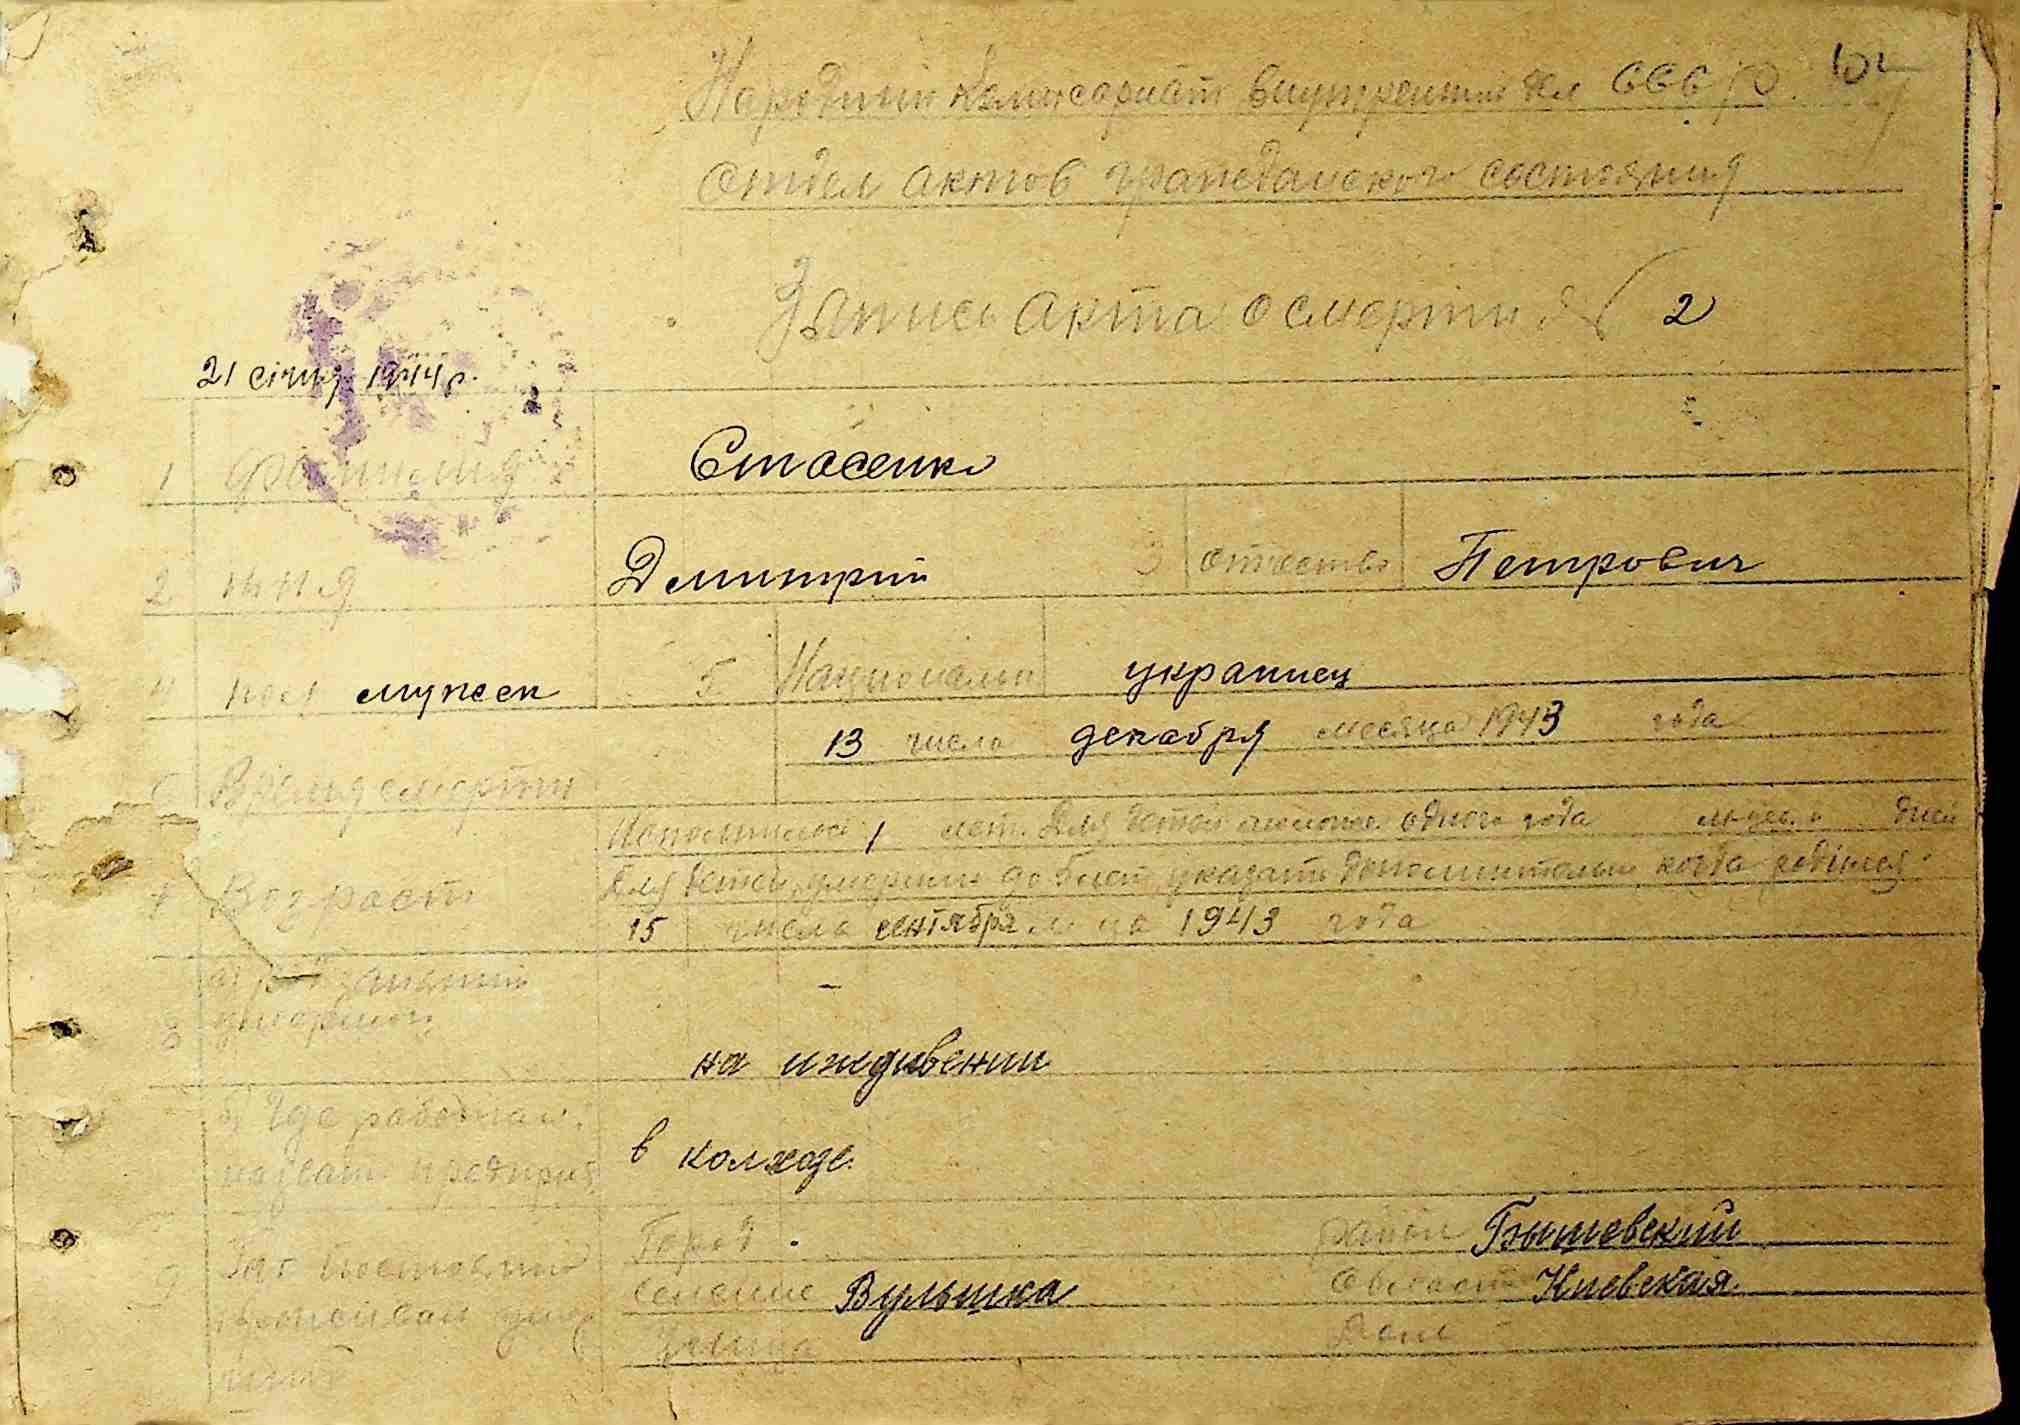 102
Народный комиссариат внутренних дел СССР
отдел актов гражданского состояния
Запись акта о смерти № 2
21 січня 1944 р.
1 Фамилия Стасенко
2 имя Дмитрий 3 отчество Петрович
4 пол мужск 5 Национальн украинец
13 числа декабря месяца 1943 года
6 Время смерти
Исполнилось 1 лет. Для детей моложе одного года м-цев и дней
7 Возраст Для детей, умерших до 5 лет, указать дополнительно, когда родился
15 числа сентября м-ца 1943 года
8 умершего -
на иждивении
Где работал в колхозе
назват. предприя
9 Город - район Бышевский
постоянно селение Вулышка Область Киевская
проживал умер улица Дом -